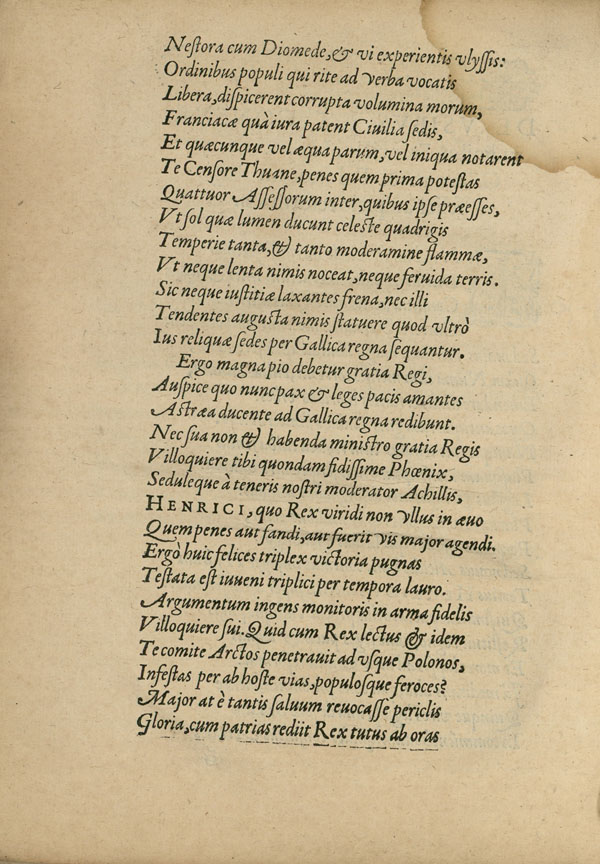 Neſtora cum Diomede,& vi experientis vlyſſis:
Ordinibus populi qui rite ad verba vocatis
Libera,diſpicerent corrupta volumina morum,
Franciacæ quà iura patent Ciuilia ſedis,
Et quæcunque vel æqua parum,vel iniqua notarent
Te Cenſore Thuane,penes quem prima poteſtas
Quattuor Aſſeſſorum inter,quibus ipſe præeſſes,
Vt ſol quæ lumen ducunt celeſte quadrigis
Temperie tanta,& tanto moderamine flammæ,
Vt neque lenta nimis noceat,neque feruida terris.
Sic neque iuſtitiæ laxantes frena,nec illi
Tendentes auguſta nimis ſtatuere quod vltrò
Ius reliquæ ſedes per Gallica regna ſequantur.
Ergo magna pio debetur gratia Regi,
Auſpice quo nunc pax & leges pacis amantes
Aſtræa ducente ad Gallica regna redibunt.
Nec ſua non & habenda miniſtro gratia Regis
Villoquiere tibi quondam fidiſſime Phœnix,
Seduleque à teneris noſtri moderator Achillis,
HENRICI, quo Rex viridi non vllus in æuo
Quem penes aut fandi,aut fuerit vis major agendi.
Ergò huic felices triplex victoria pugnas
Teſtata eſt iuueni triplici per tempora lauro.
Argumentum ingens monitoris in arma fidelis
Villoquiere ſui. Quid cum Rex lectus & idem
Te comite Arctos penetrauit ad vſque Polonos,
Infeſtas per ab hoſte vias,populoſque feroces?
Major at è tantis ſaluum reuocaſſe periclis
Gloria,cum patrias rediit Rex tutus ab oras